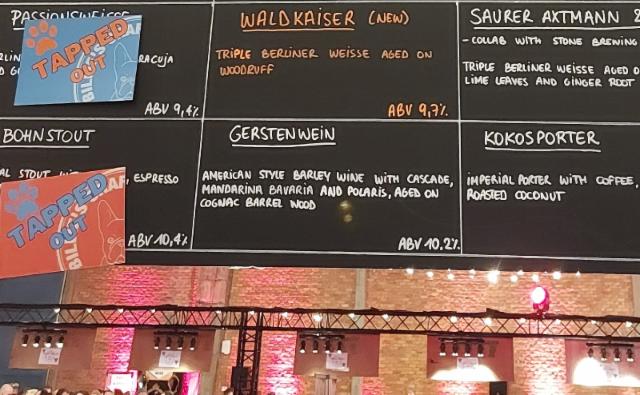 PASSIONSWEISSE
TAPPED
OUT
ABV 9,4%
WALDKAISER (NEW)
TRIPLE BERLINER WEISSE AGED ON
WOODRUFF
ABV 9,7%
SAURER AXTMANN &
- COLLAB WITH STONE BREWING
TRIPLE BERLINER WEISSE AGED O
LIME LEAVES AND GINGER ROOT
BOHNSTOUT
STOUT
, ESPRESSO
TAPPED
OUT
ABV 10,4%
GERSTENWEIN
AMERICAN STYLE BARLEY WINE WITH CASCADE,
MANDARINA BAVARIA AND POLARIS, AGED ON
COGNAC BARREL WOOD
ABV 10.2%
KOKOSPORTER
IMPERIAL PORTER WITH COFFEE,
ROASTED COCONUT